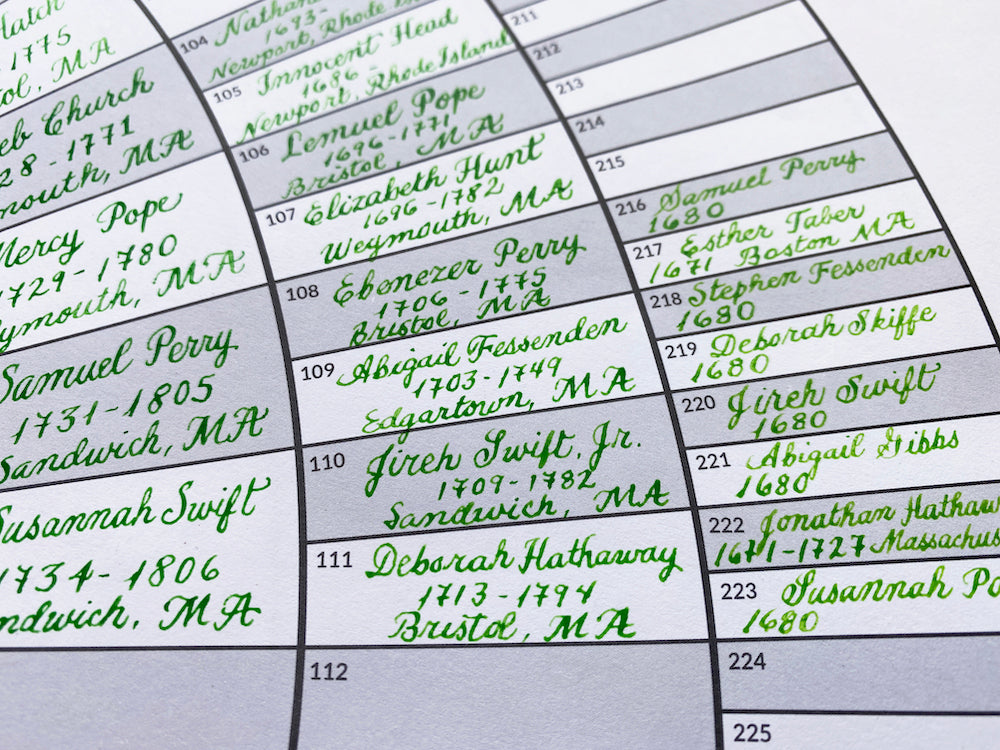 Hatch
1775
MA
Church
1771
MA
Mercy Pope
1729-1780
MA
Samuel Perry
1731-1805
Sandwich, MA
Susannah Swift
1734-1806
MA
104
1693-
Newport, Rhode
105 Innocent Head
1686-
Newport, Rhode Island
106 Lemuel Pope
1696-1771
Bristol, MA
107 Elizabeth Hunt
1696-1782
Weymouth, MA
108 Ebenezer Perry
1706-1775
Bristol, MA
109 Abigail Fessenden
1703-1749
Edgartown, MA
110 Jireh Swift, Jr.
1709-1782
Sandwich, MA
111 Deborah Hathaway
1713-1794
Bristol, MA
112
211
212
213
214
215
216 Samuel Perry
1680
217 Esther Taber
1671 Boston MA
218 Stephen Fessenden
1680
219 Deborah Skiffe
1680
220 Jireh Swift
1680
221 Abigail Gibbs
1680
222 Jonathan
1671-1727
223 Susannah
1680
224
225